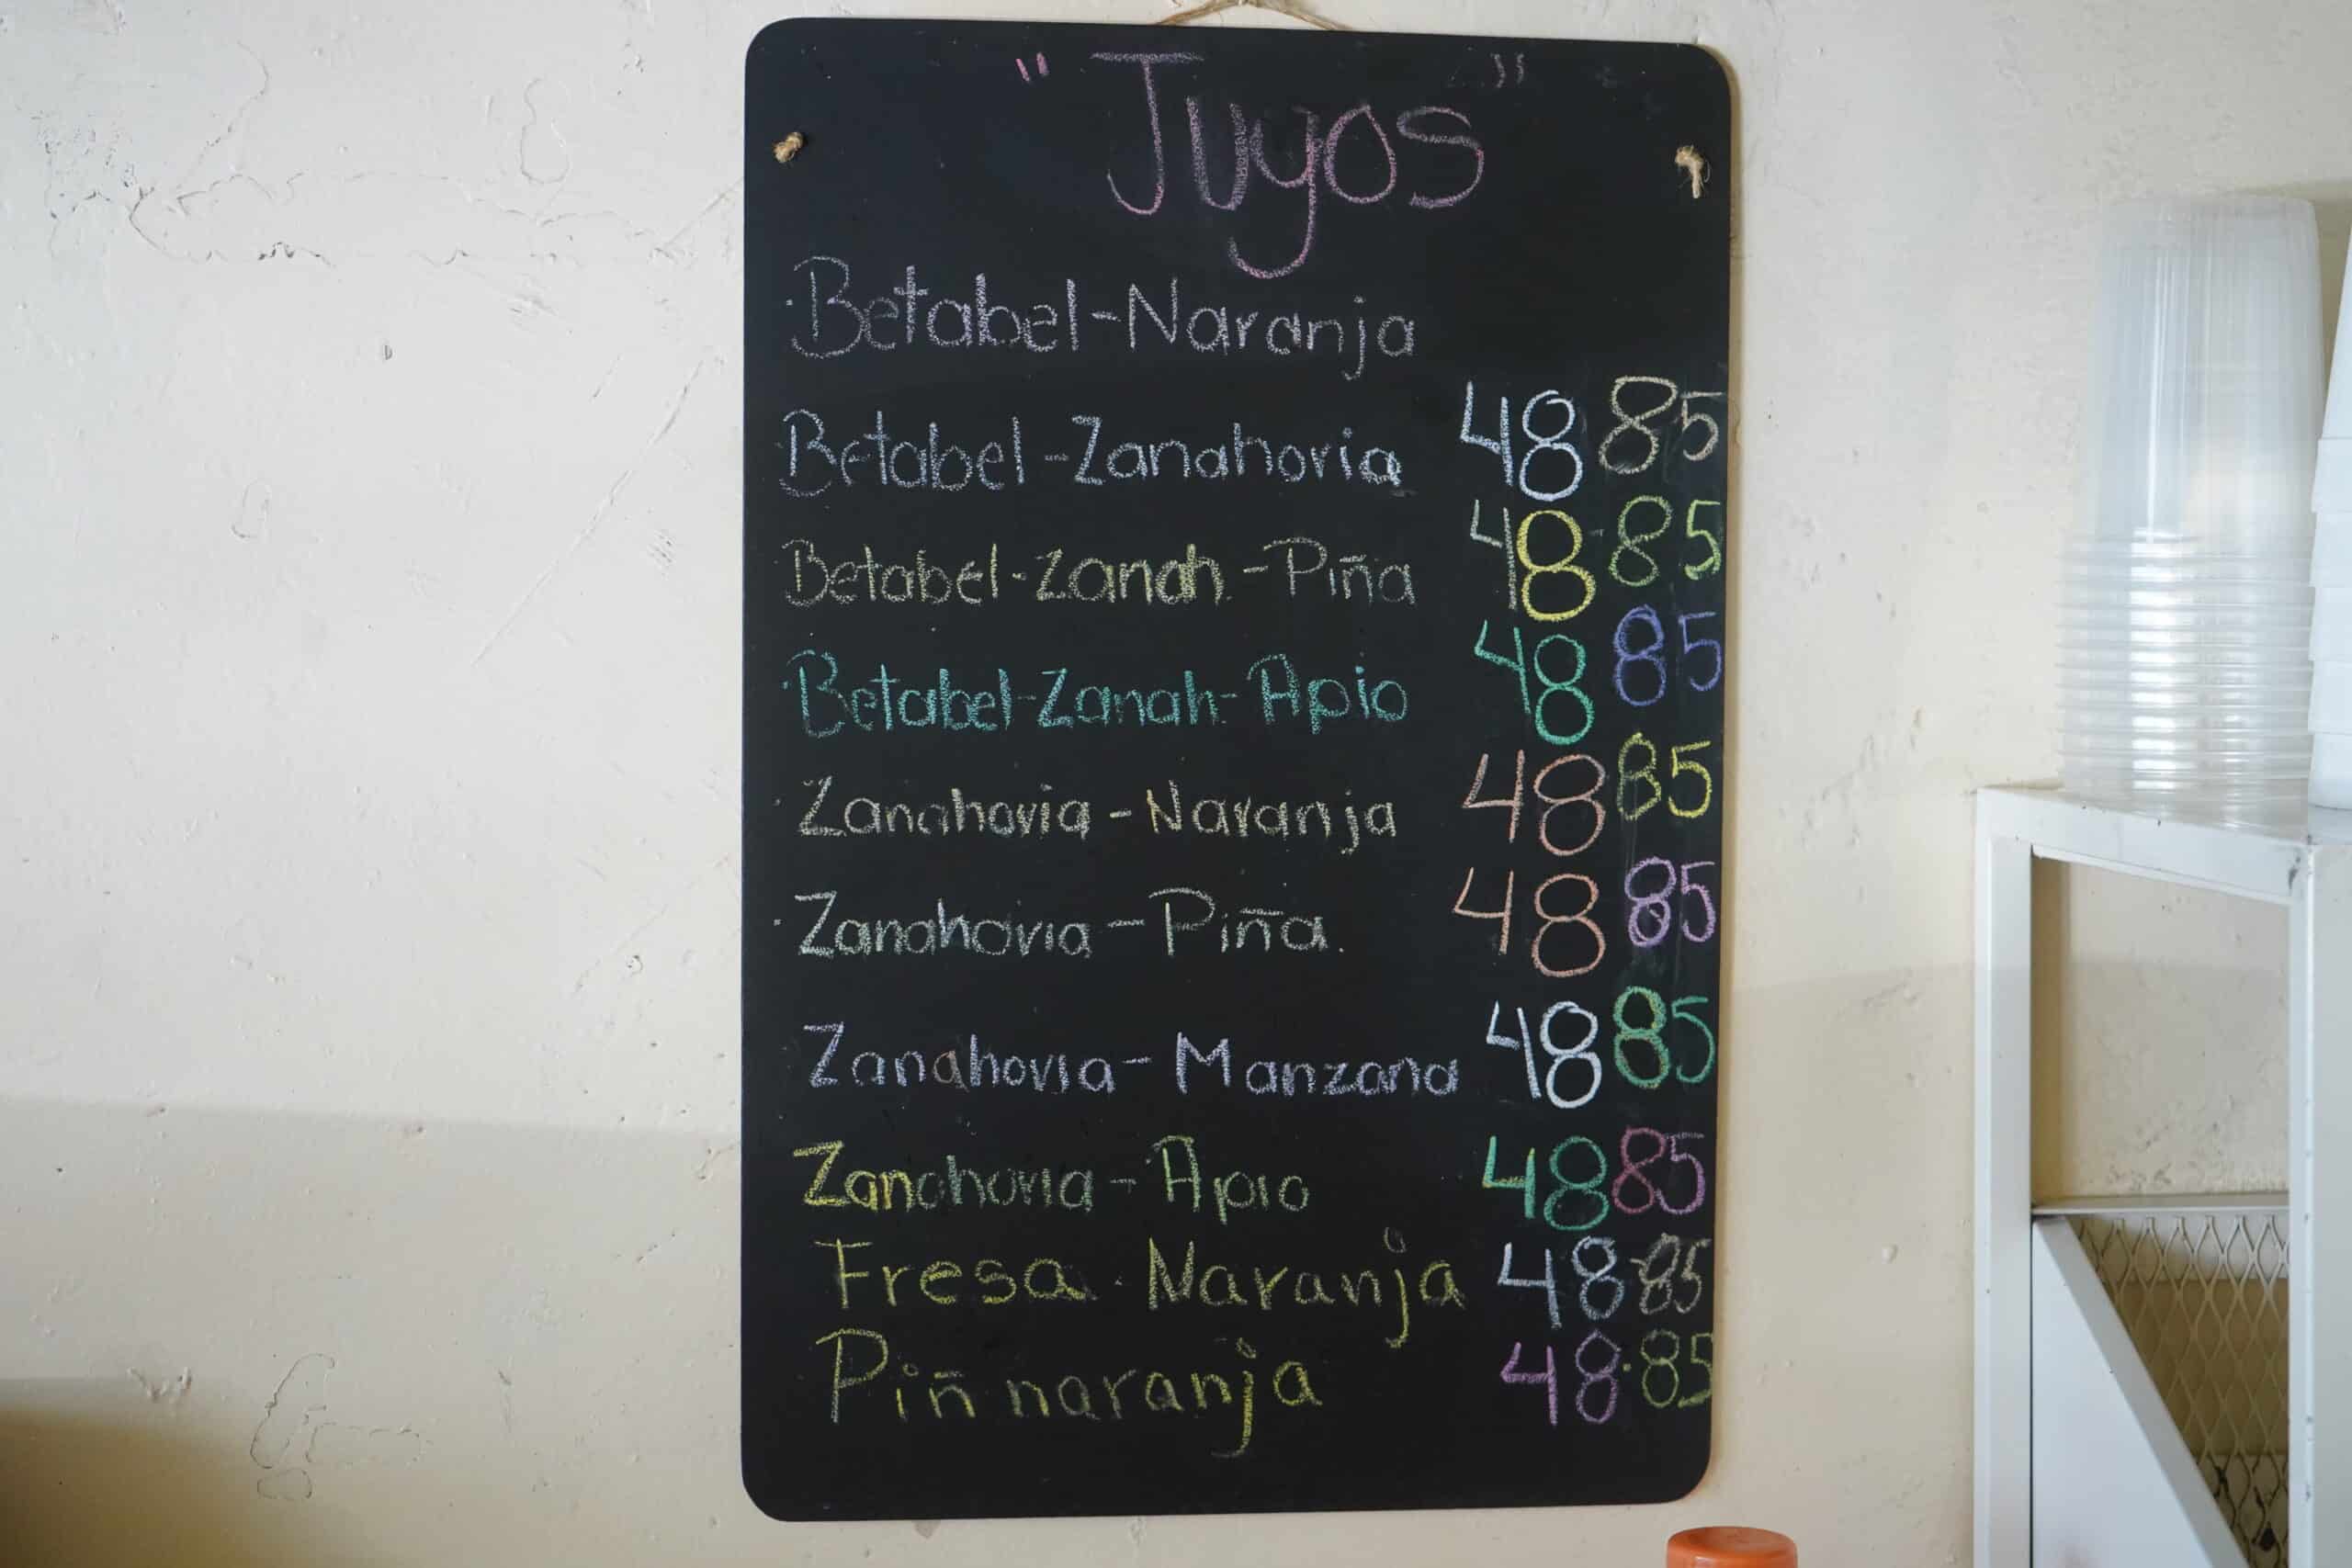 "Jugos"
Betabel-Naranja
Betabel-Zanahoria 48 85
Betabel-Zanah.-Piña 48-85
Betabel-Zanah-Apio 48 85
Zanahoria-Naranja 48 85
Zanahoria-Piña. 48 85
Zanahoria-Manzana 48 85
Zanahoria-Apio 48 85
Fresa.Naranja 48-85
Piñ naranja 48.85